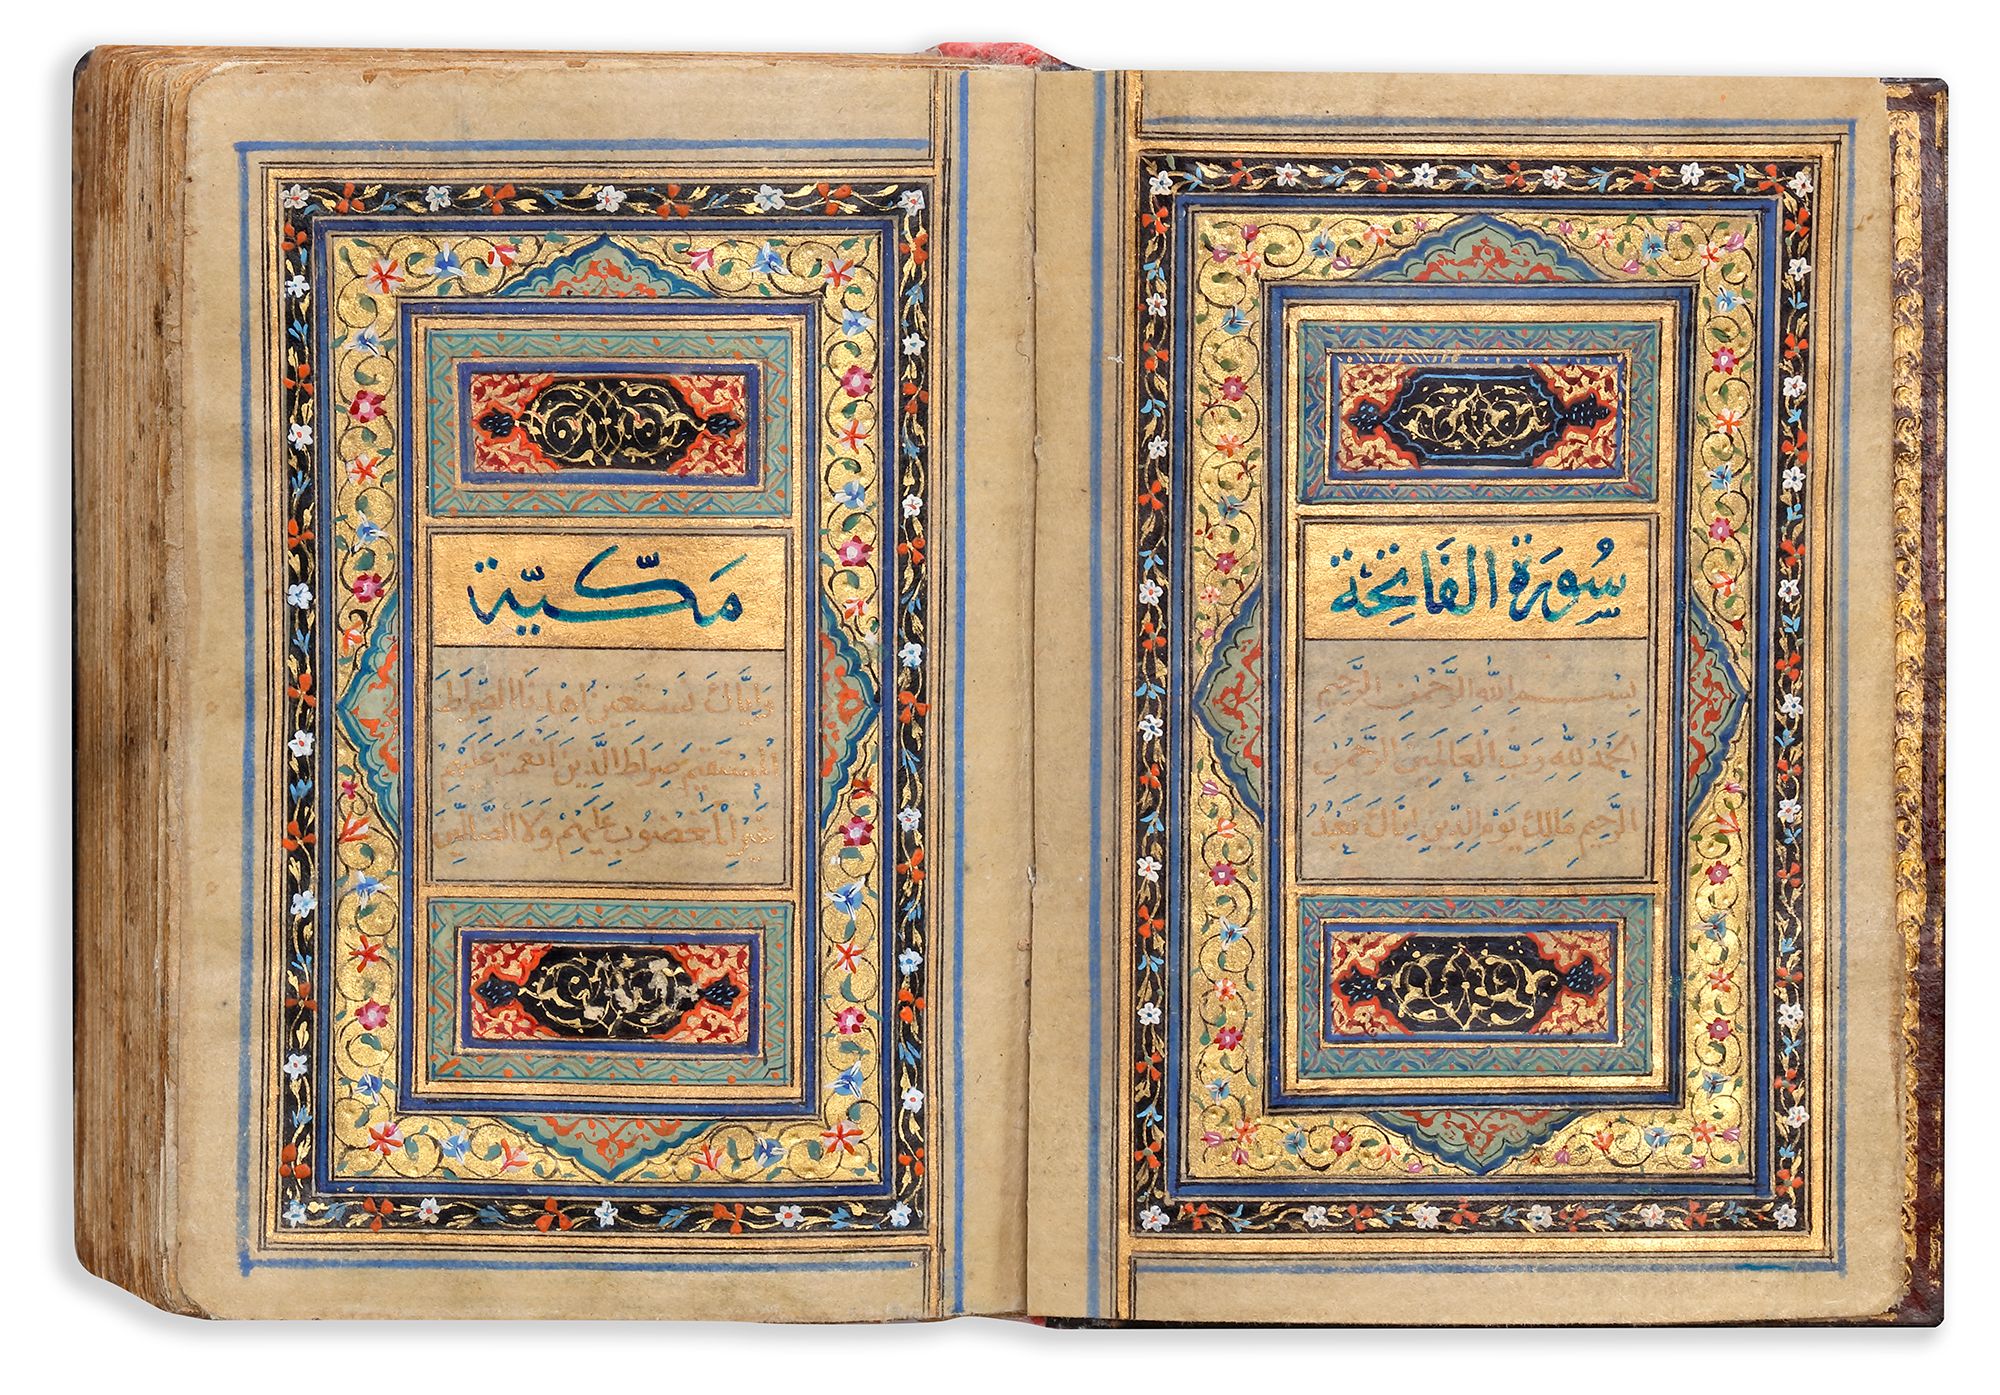 سُورَة الفَاتِحَة
بِسْمِ اللهِ الرَّحْمٰنِ الرَّحِيمِ
الحَمْدُ لِلّهِ رَبِّ العَالَمِينَ الرَّحْمٰنِ
الرَّحِيمِ مَالِكِ يَوْمِ الدِّينِ اِيَّاكَ نَعْبُدُ
مَكِّيَّة
وَاِيَّاكَ نَسْتَعِينُ اِهْدِنَا الصِّرَاطَ
المُسْتَقِيمَ صِرَاطَ الَّذِينَ اَنْعَمْتَ عَلَيْهِمْ
غَيْرِ المَغْضُوبِ عَلَيْهِمْ وَلَا الضَّالِّينَ